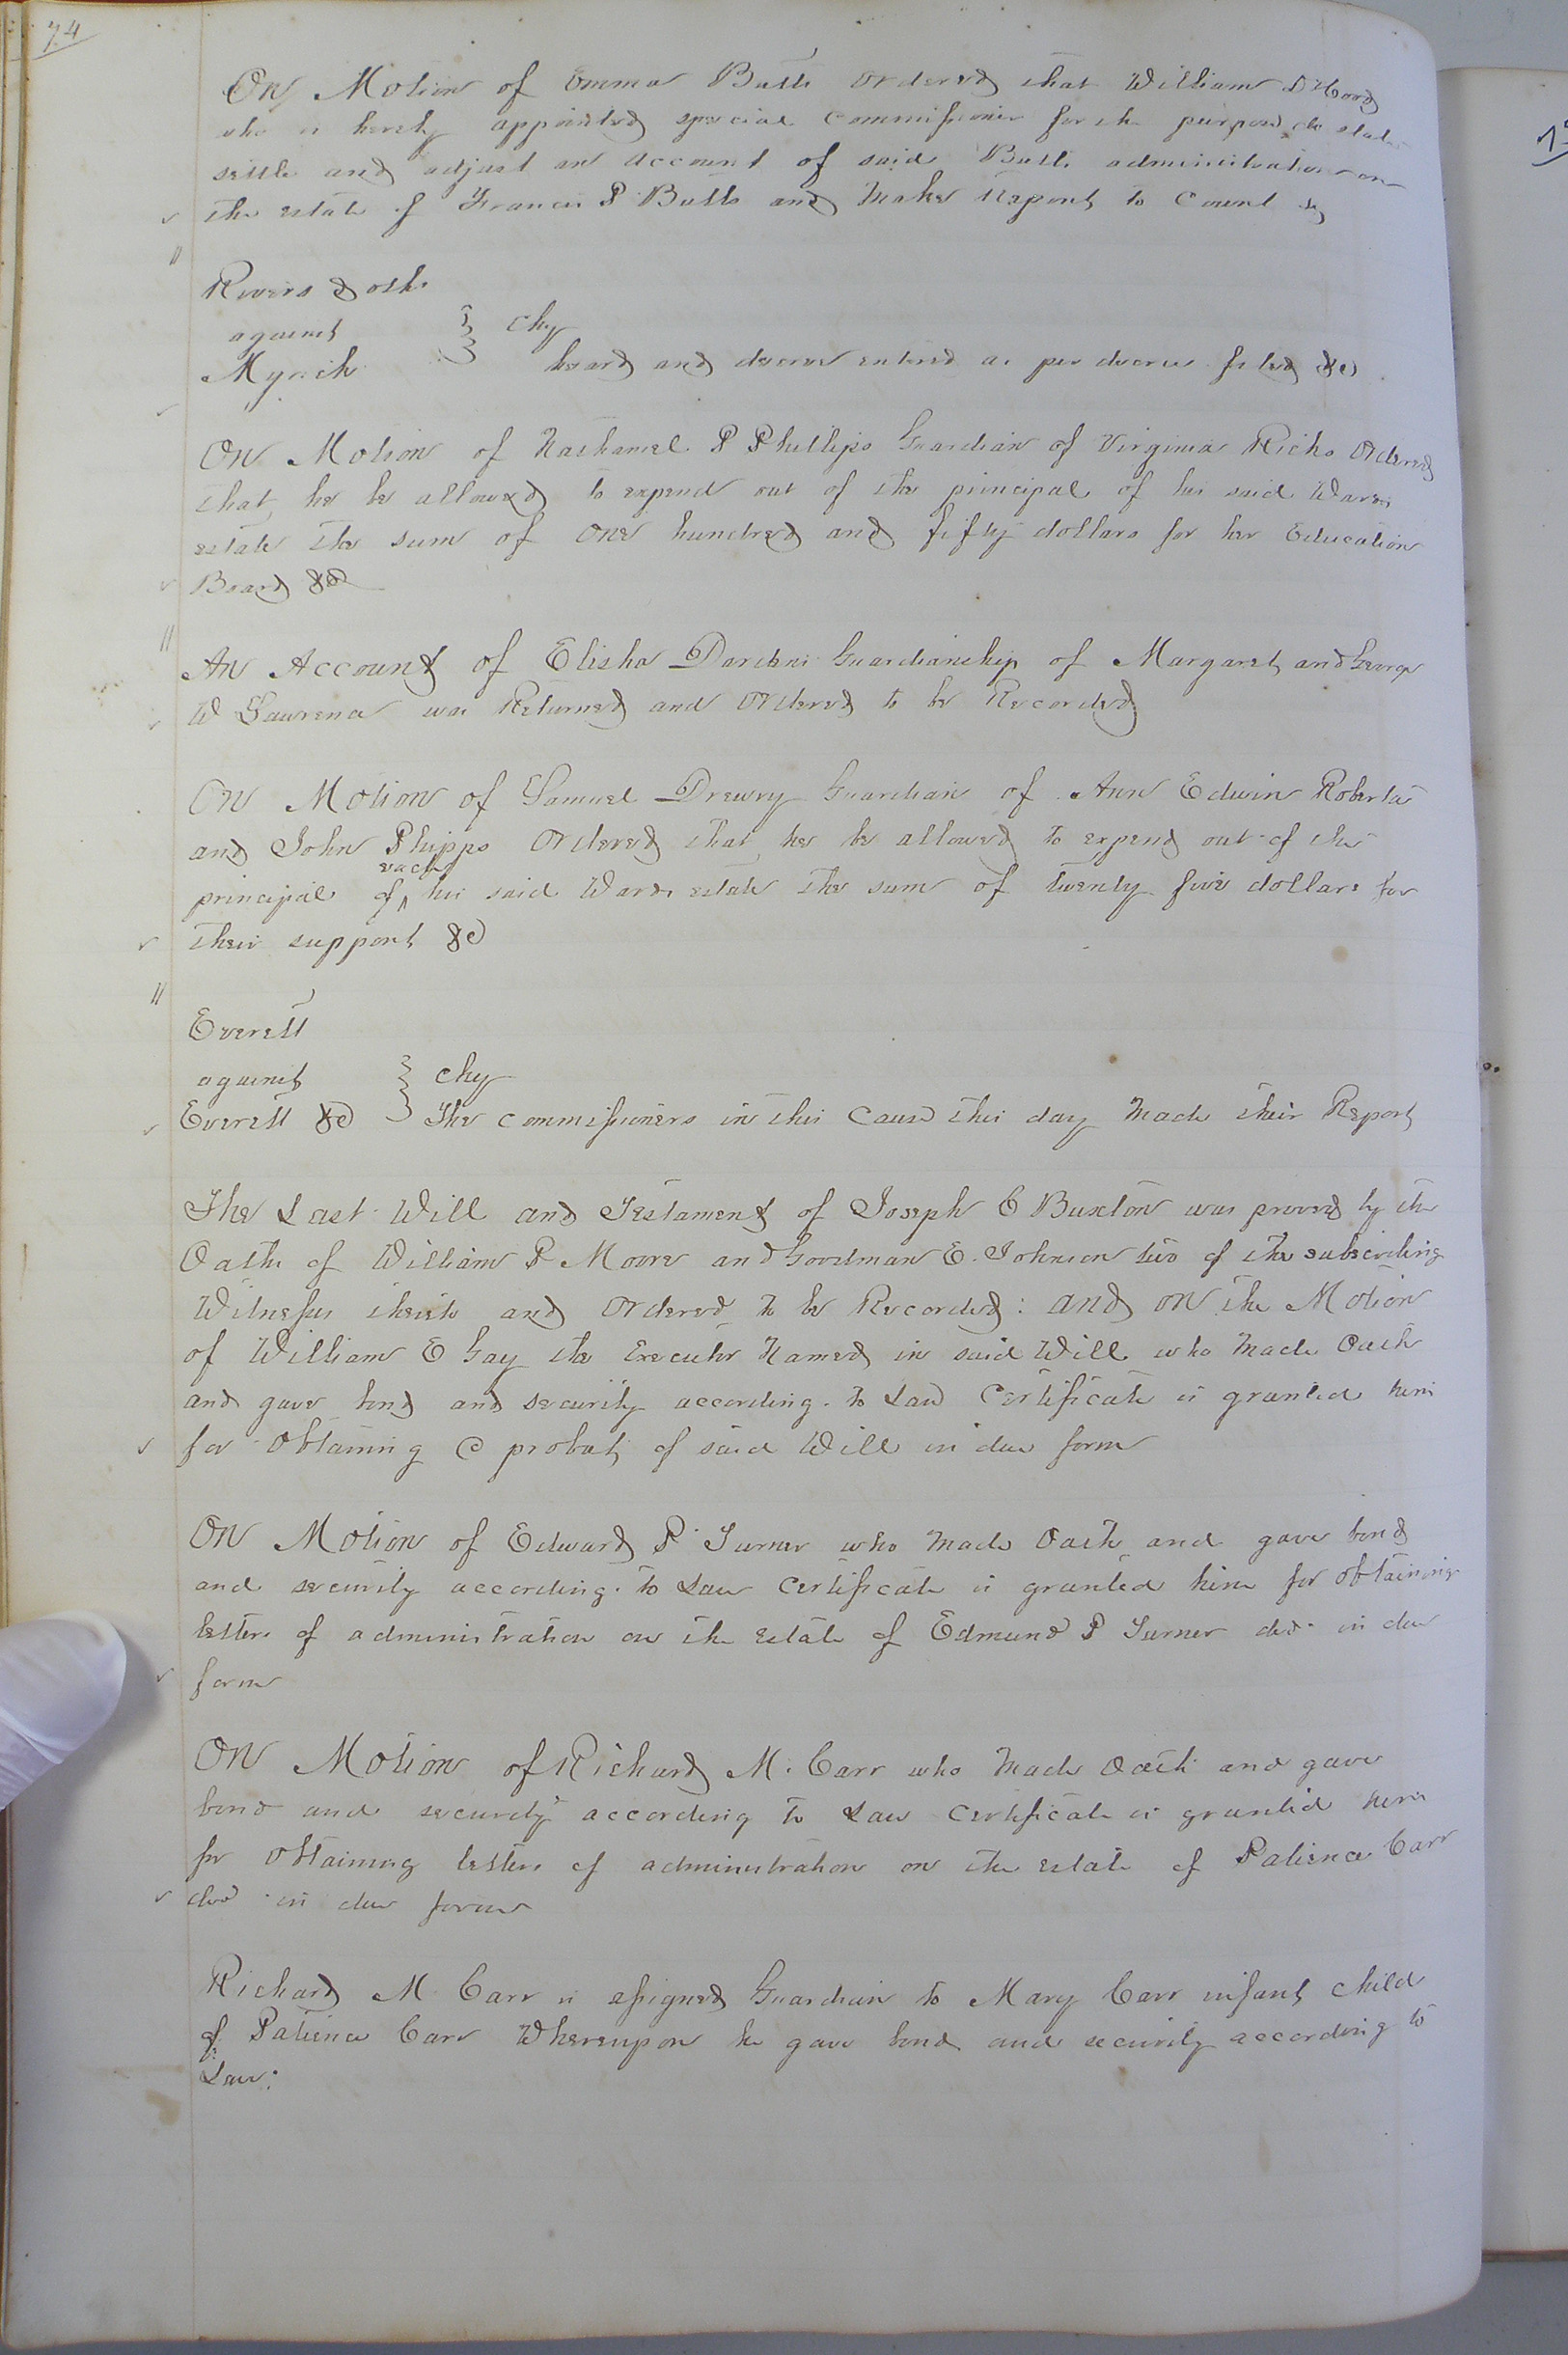 74
On Motion of Emma Butts ordered that William D Hood
who is hereby appointed special commissioner for the purpose do state
settle and adjust an account of said Butts administration on
the estate of Francis P Butts and make Report to Court &c
Rivers & oth.
against } chy
Myrick heard and decree entered as per decree filed &c
On Motion of Nathaniel P Phillips Guardian of Virginia Ricks Ordered
that he be allowed to expend out of the principal of his said Wards
estate the sum of One hundred and fifty dollars for her Education
Board &c
An Account of Elisha Dardens Guardianship of Margaret and George
W Lawrence was Returned and Ordered to be Recorded
On Motion of Samuel Drewry Guardian of Ann Edwin Roberta
and John Phipps Ordered that he be allowed to expend out of the
each
principal of ^ his said Wards estate the sum of twenty five dollars for
their support &c
Everett
against } chy
Everett &c The commissioners in this Cause this day Made their Report
The Last Will and Testament of Joseph C Buxton was proved by the
Oaths of William P Moore and Goodman E. Johnson two of the subscribing
Witnesses thereto and Ordered to be Recorded: and on the Motion
of William E Gay the Executor Named in said Will who Made Oath
and gave bond and security according to Law Certificate is granted him
for Obtaining a probat of said Will in due form
On Motion of Edward P Turner who Made Oath and gave bond
and security according to Law Certificate is granted him for obtaining
letters of administration on the Estate of Edmund P Turner decd in due
form
On Motion of Richard M. Carr who Made Oath and gave
bond and security according to Law Certificate is granted him
for Obtaining letters of administration on the estate of Patience Carr
decd in due form
Richard M Carr is assigned Guardian to Mary Carr infant child
of Patience Carr Whereupon he gave bond and security according to
Law: